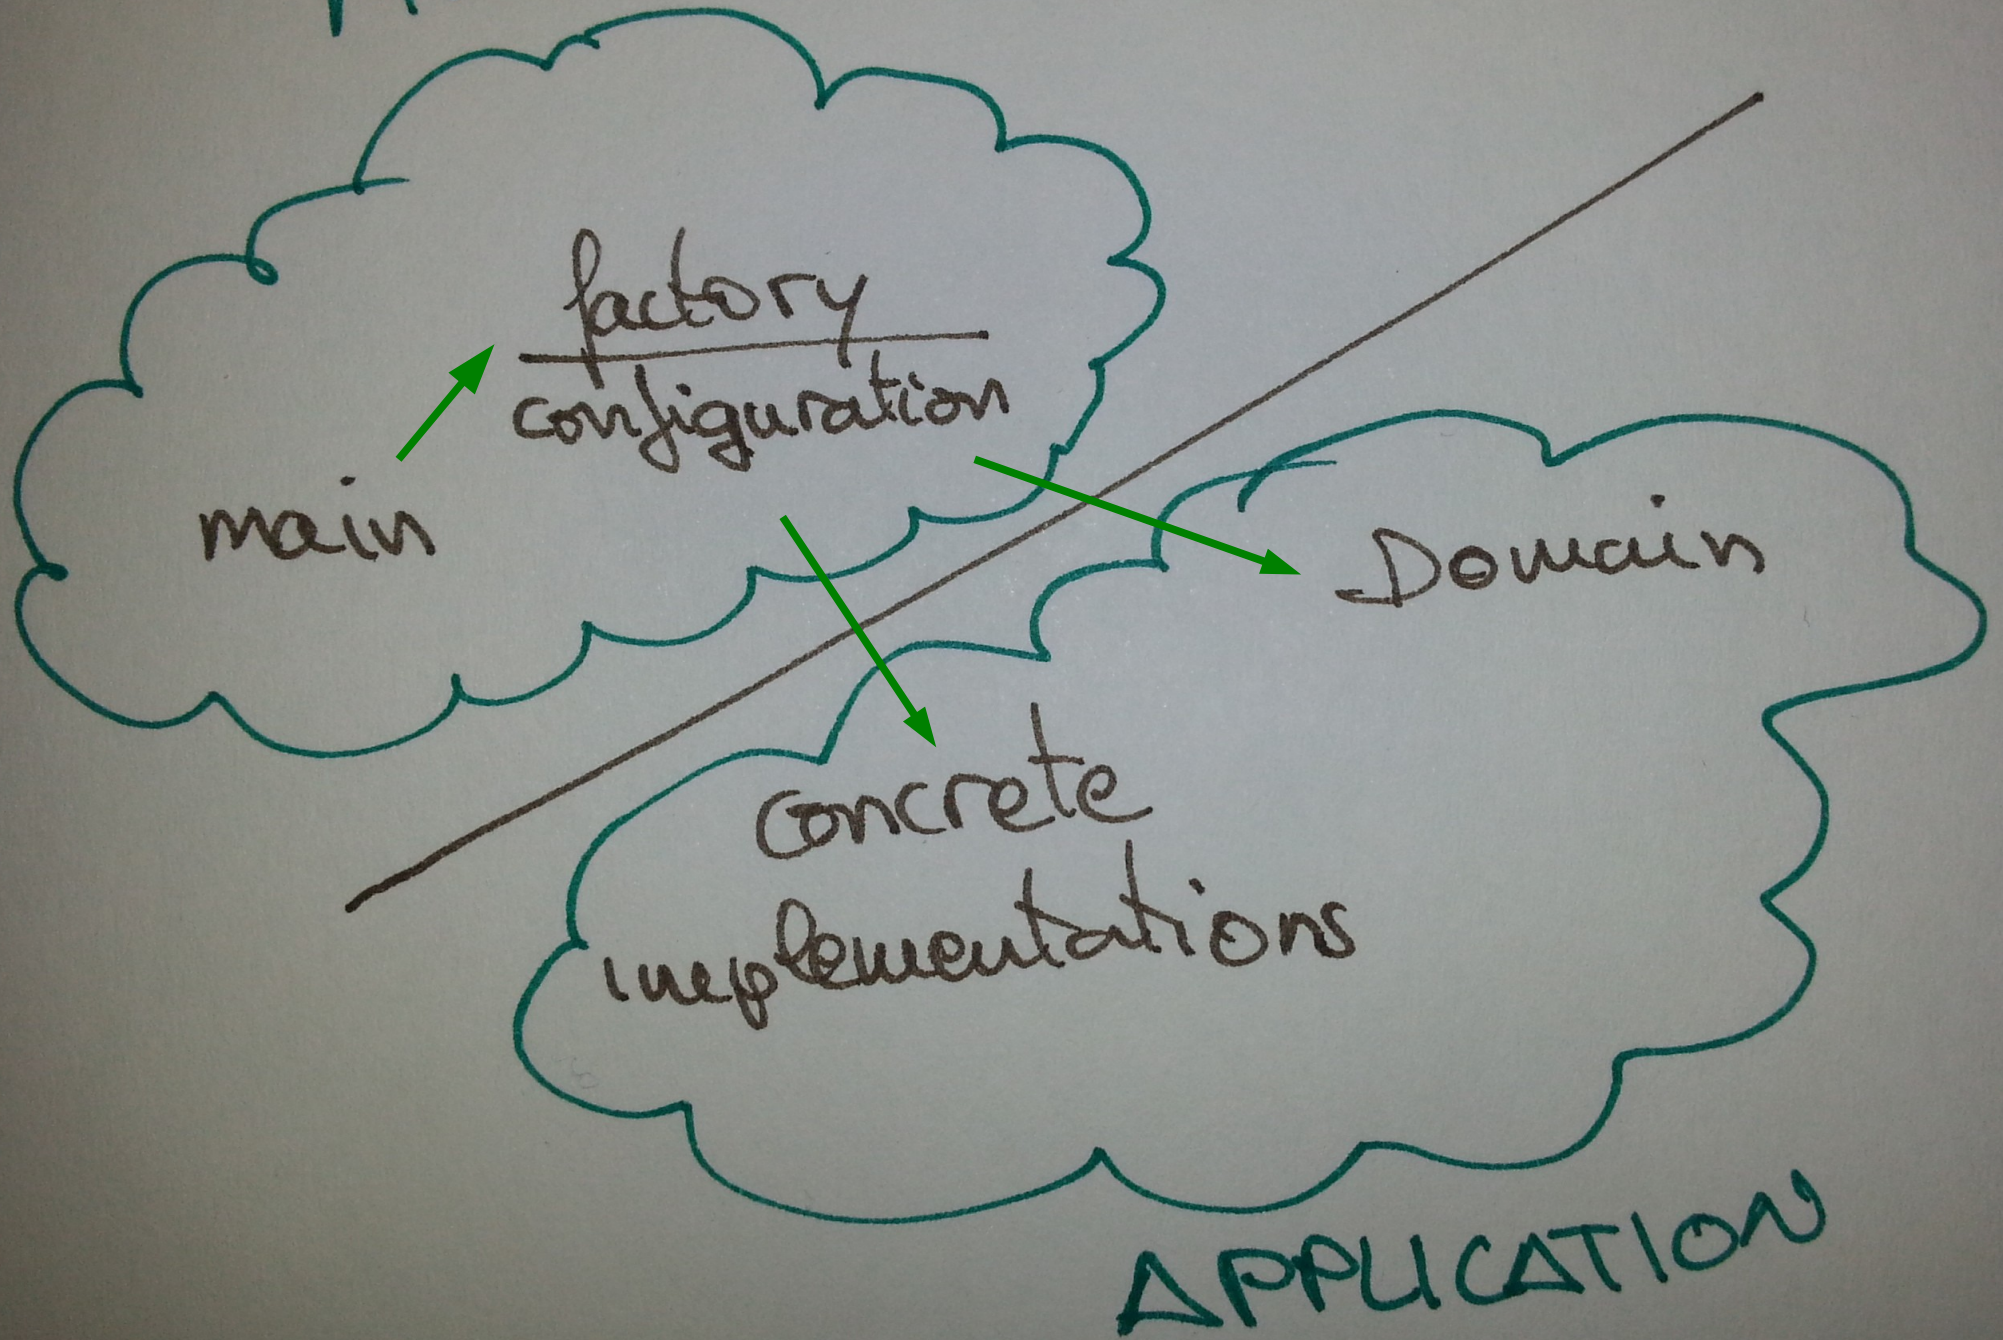 factory
configuration
main
Domain
concrete
implementations
APPLICATION